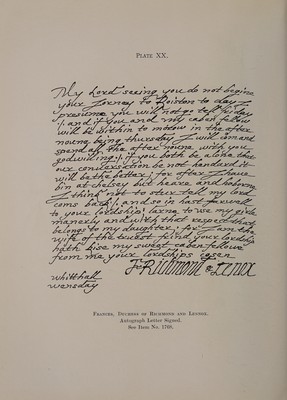 PLATE XX.
My Lord seeing you do not begine
your Jorney to Roiston to day I
presume you will not go tell friday
& if you and my caben fellow
will be within to morow in the after
noune being thursday I will com and
spend all the after noune with you
godwilling if you both be alone, that
our convirsation be not handerd, it
will be the better; for after I have
bin at chelsey but heare, and
I think not to other tell my lord
coms back; and so in hast farwell
to your lordship: larne to use my give
manerly and with that respect that
belongs to my daughter; for I am the
wife of the kind your lordship
hath kise my sweet caben fellowe
from me your lordships cosen
Fr Richmond & Lenox
whitthall
wensday
FRANCES, DUCHESS OF RICHMOND AND LENNOX.
Autograph Letter Signed.
See Item No. 1769.